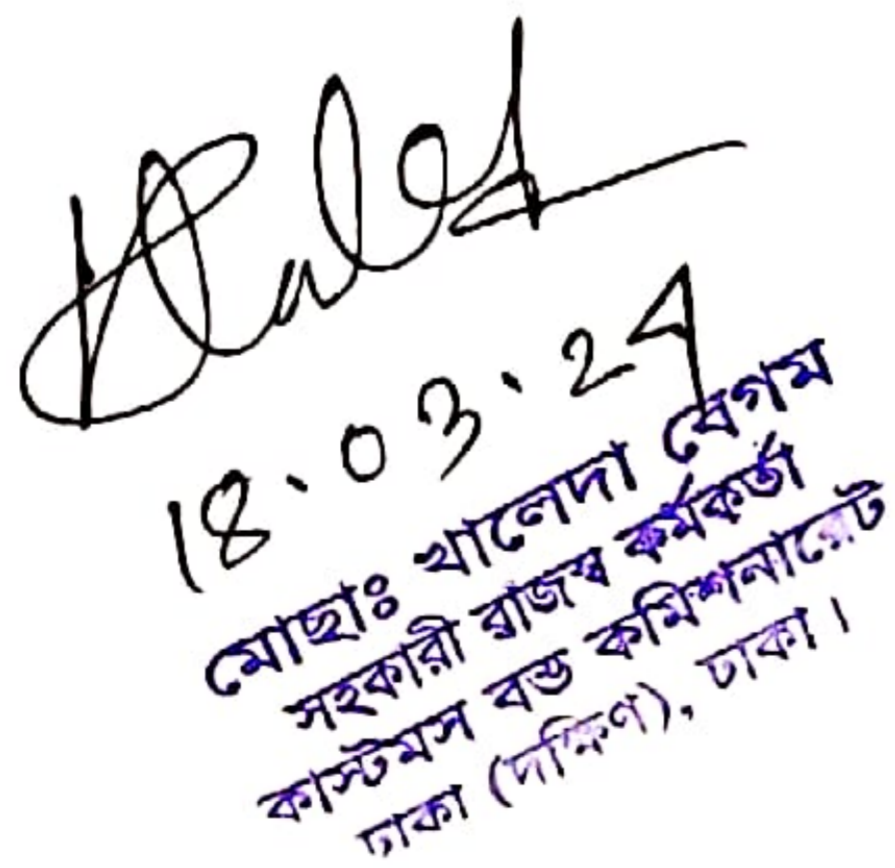 Khaled
18.03.24
মোছাঃ খালেদা বেগম
সহকারী রাজস্ব কর্মকর্তা
কাস্টমস বন্ড কমিশনারেট
ঢাকা (দক্ষিণ), ঢাকা।